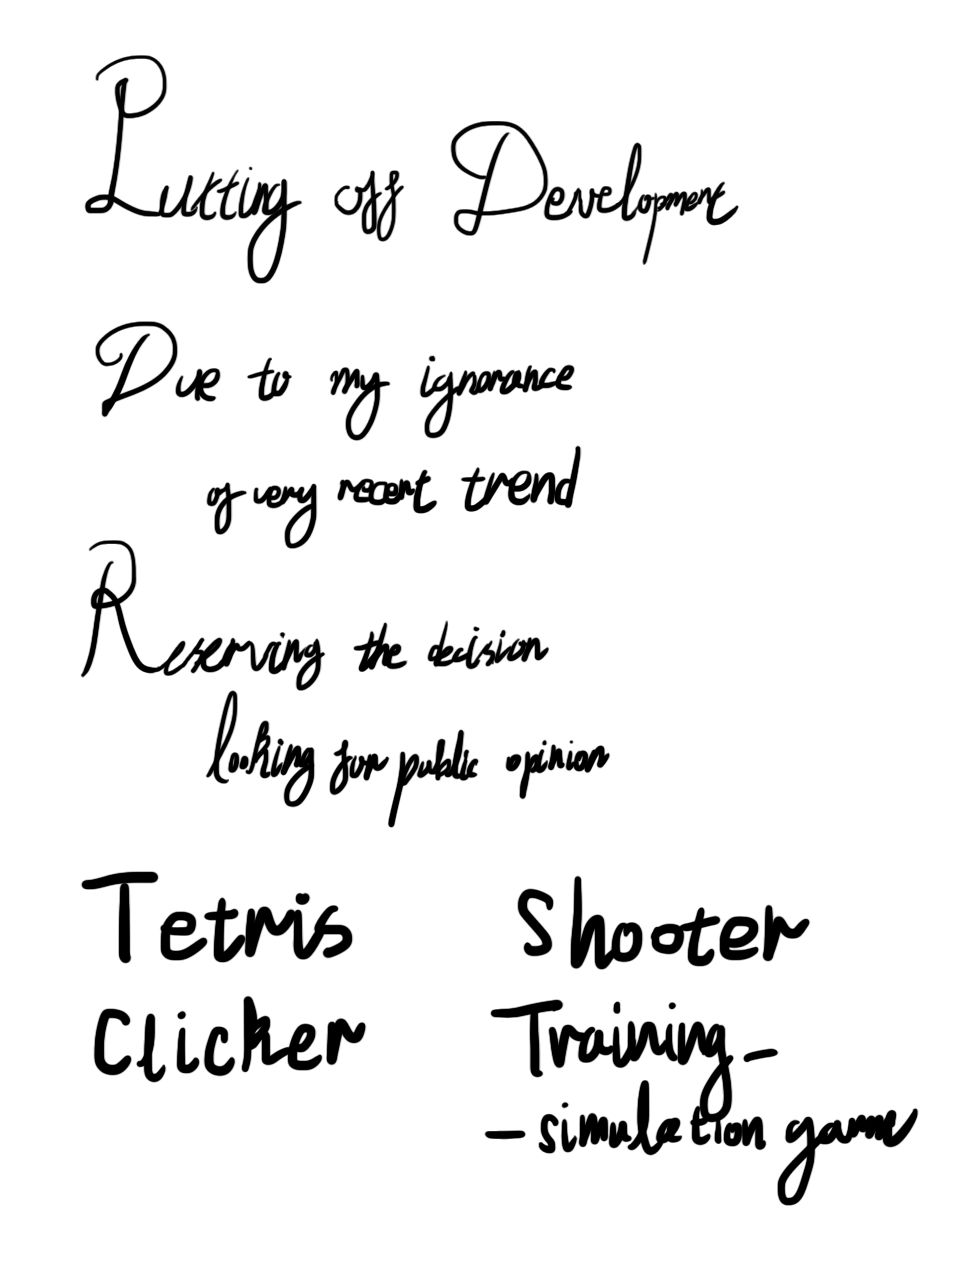 Putting off Development
Due to my ignorance
of very recent trend
Reserving the decision
looking for public opinion
Tetris Shooter
Clicker Training-
-simulation game